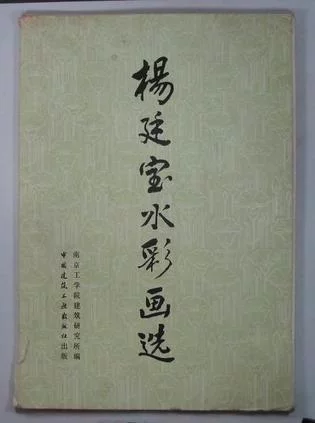 楊廷宝水彩画选
南京工学院建筑研究所编
中国建筑工业出版社出版